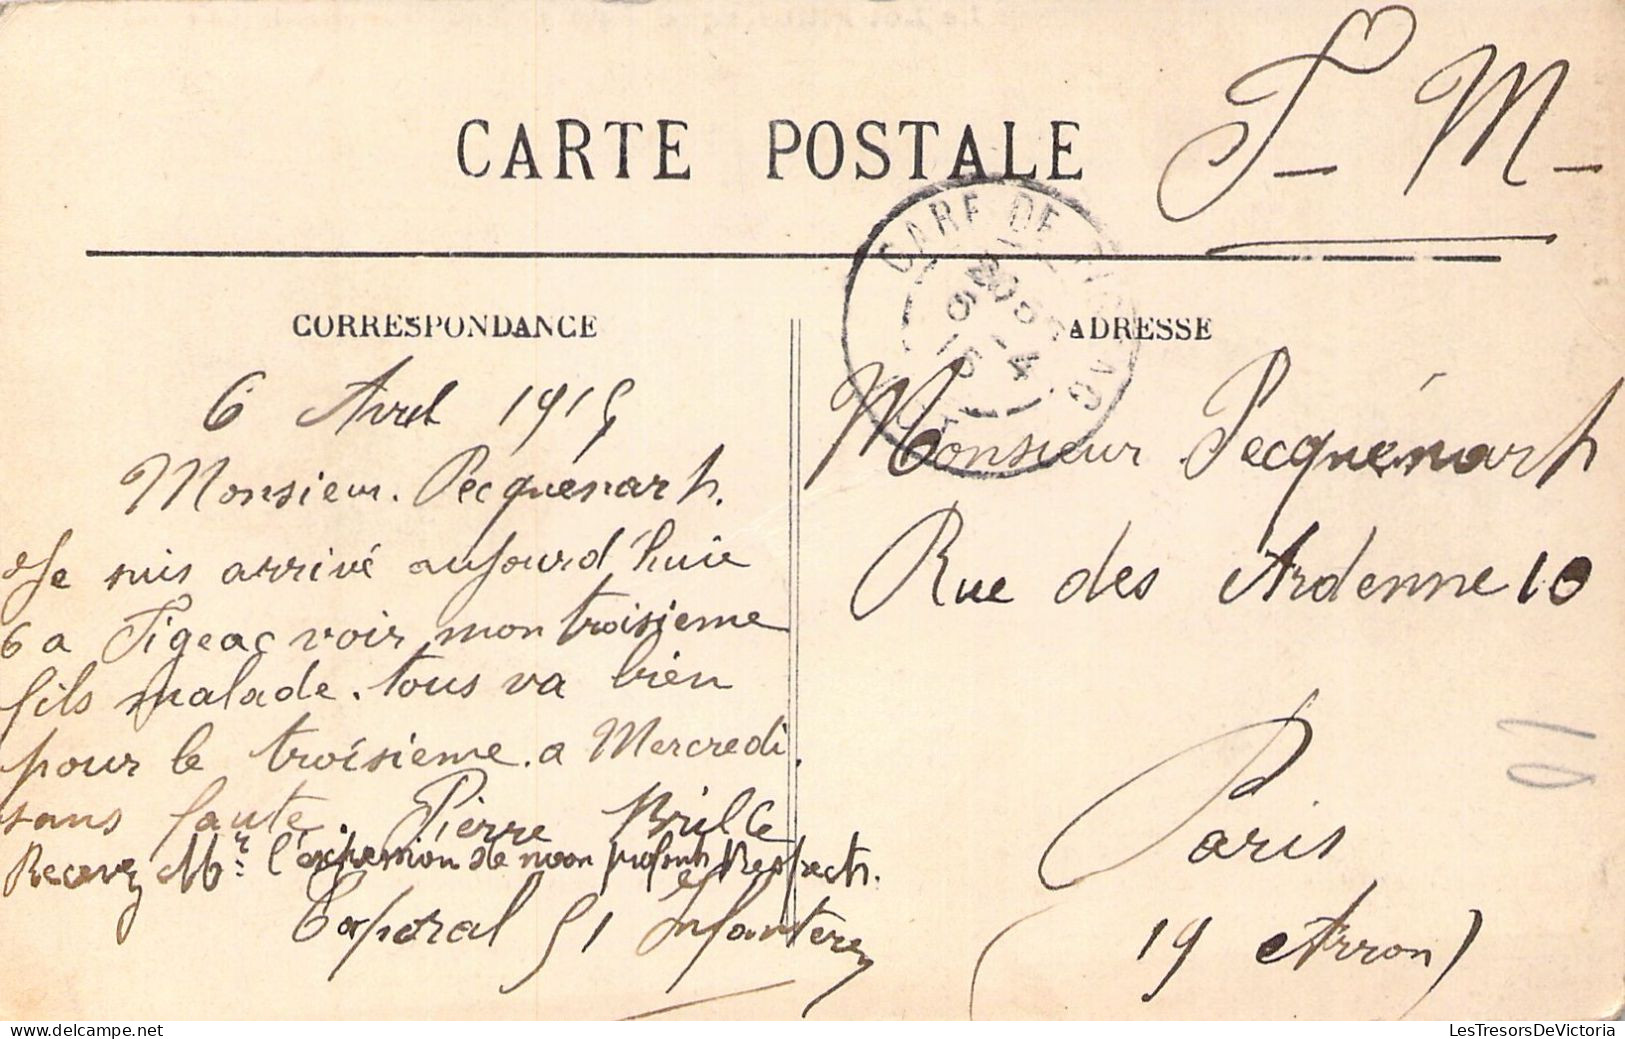 F - M -
CARTE POSTALE
GARE DE FIGEAC
CORRESPONDANCE
6 Avril 1915
Monsieur. Pecquénart.
Je suis arrivé aujourd huie
6 a Figeac voir mon troisieme
fils malade. tous va bien
pour le troisieme. a Mercredi.
sans faute. Pierre Brille
Recevez Mr l'expression de mon profond Respect.
Corporal 51 Infanterie
ADRESSE
Monsieur Pecquénart
Rue des Ardenne 10
Paris
(19 Arron)
LesTresorsDeVictoria